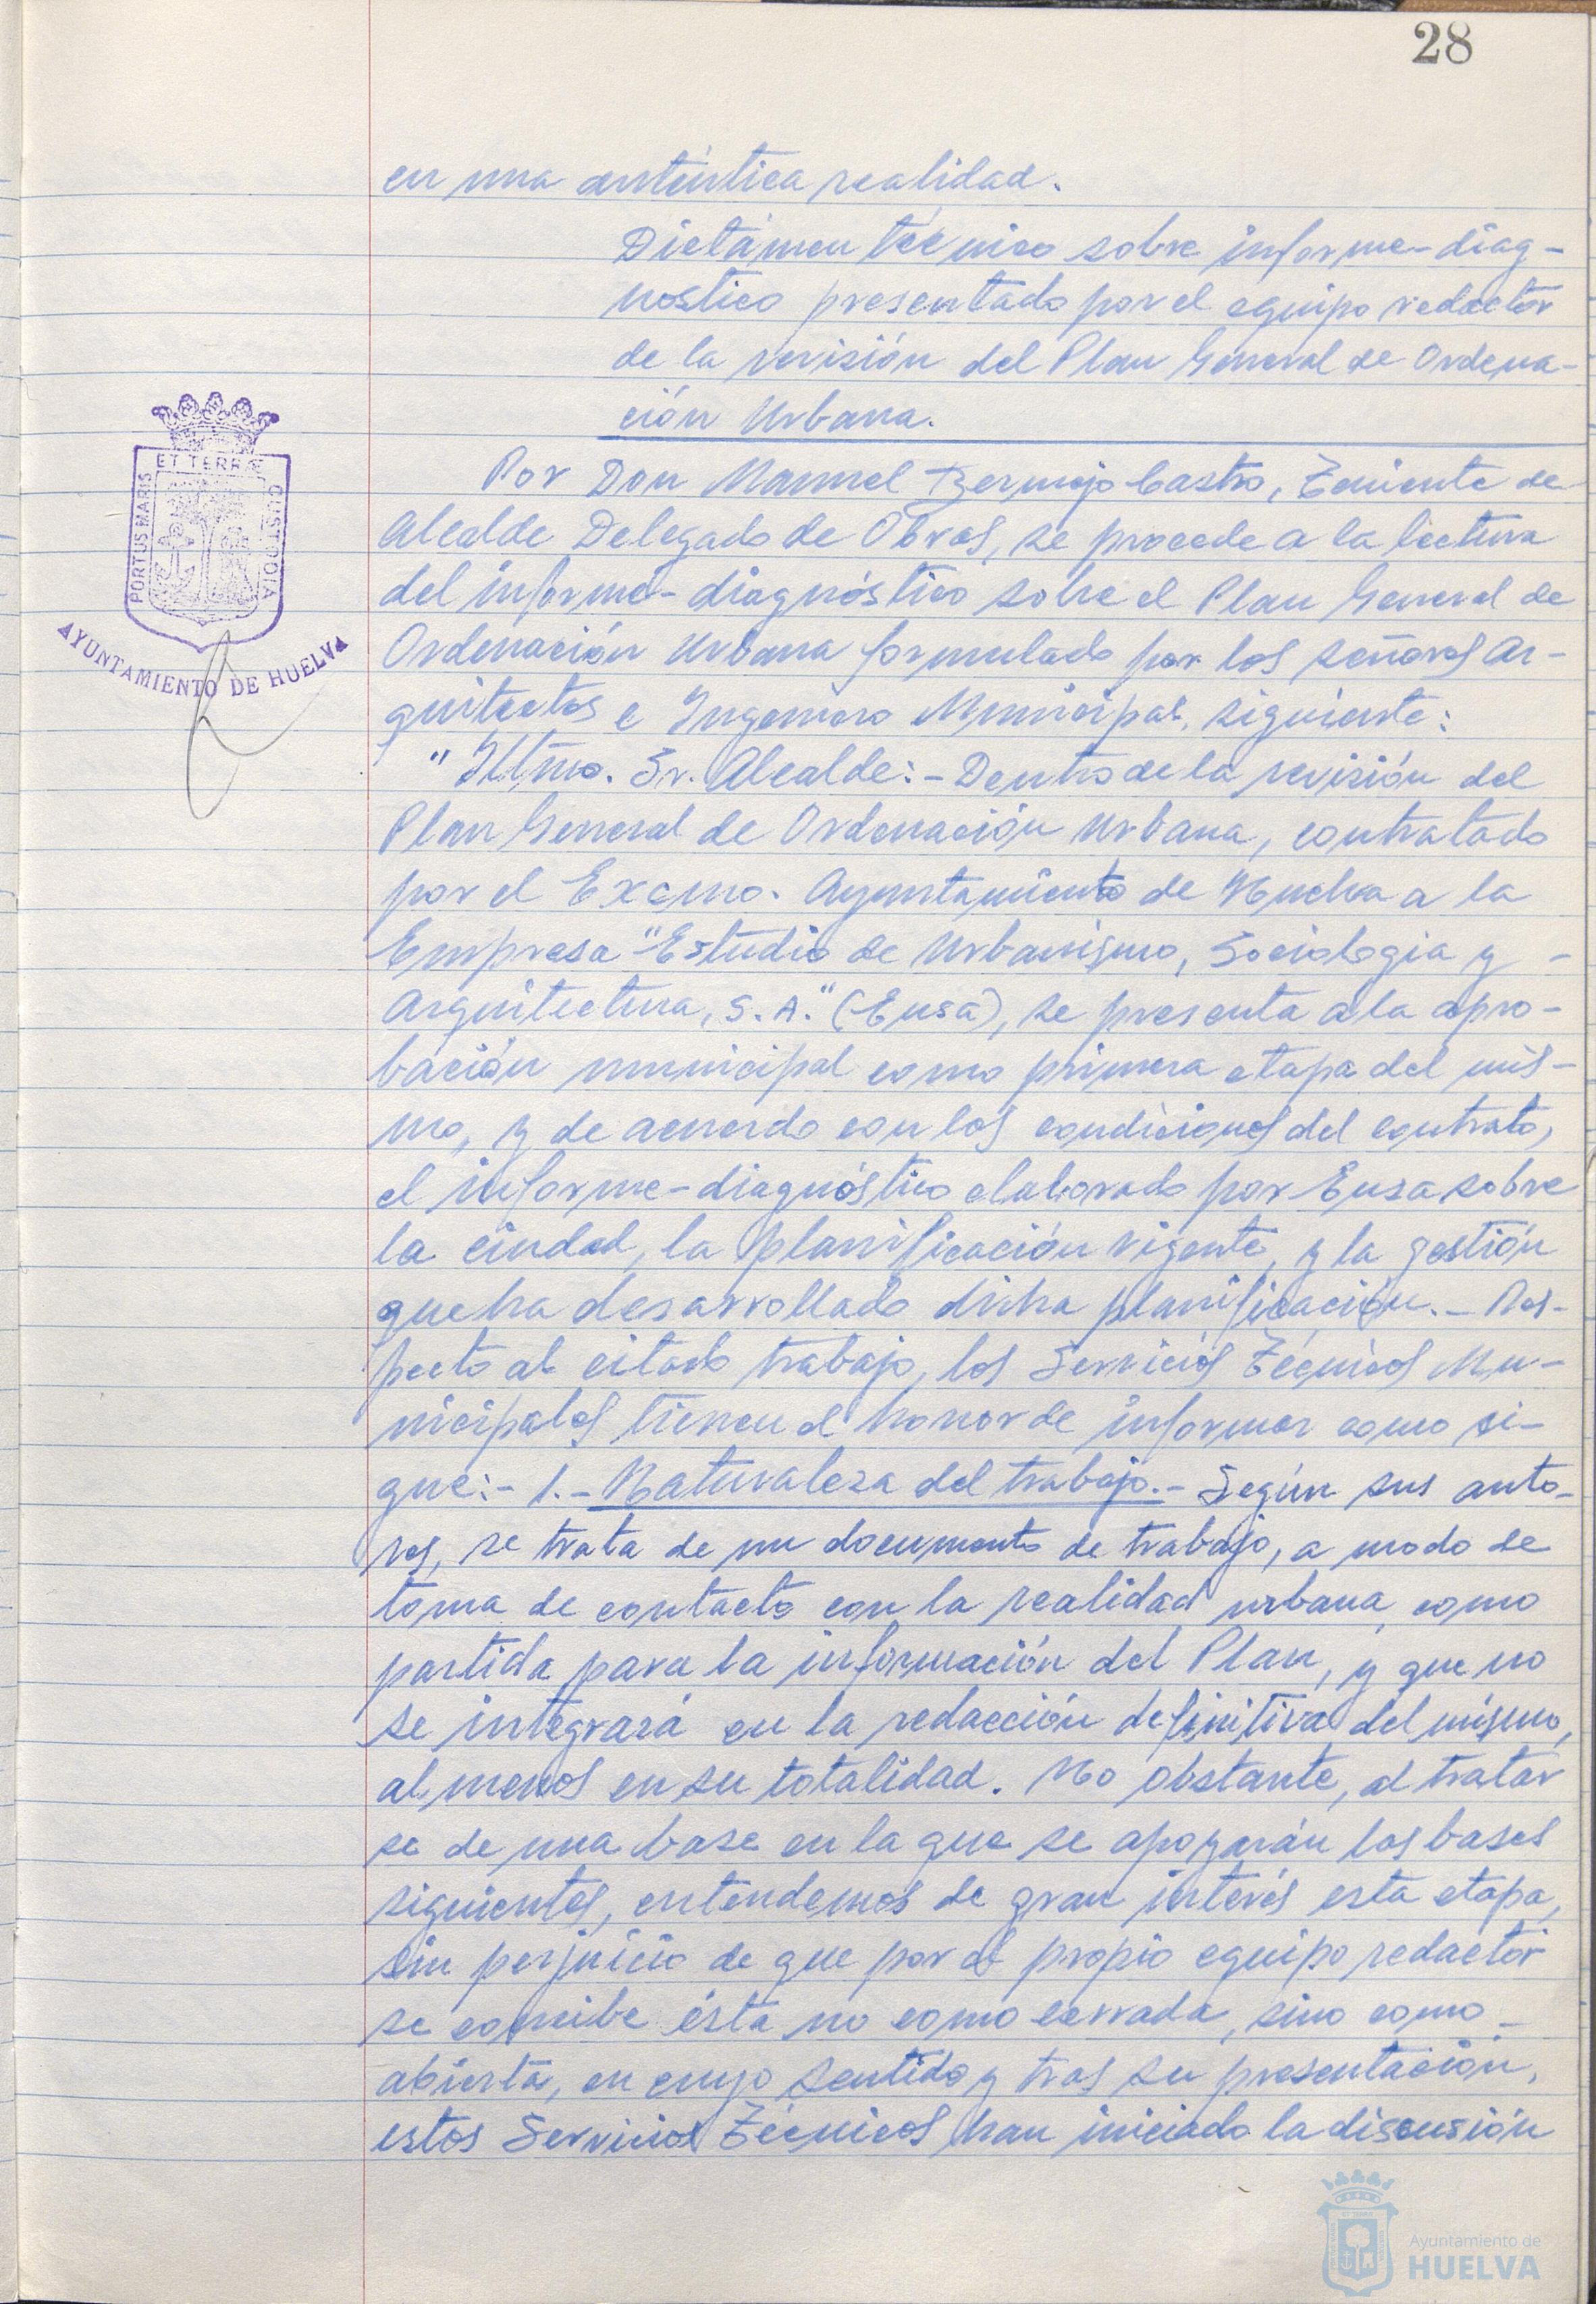 28
en una auténtica realidad.
Dictámen técnico sobre informe-diag-
nostico presentado por el equipo redactor
de la revisión del Plan General de Ordena-
ción Urbana.
Por Don Manuel Bermejo Castro, Teniente de
Alcalde Delegado de Obras, se procede a la lectura
del informe-diagnóstico sobre el Plan General de
Ordenación Urbana formulado por los señores Ar-
quitectos e Ingeniero Municipal, siguiente:
"Iltmo. Sr. Alcalde:- Dentro de la revisión del
Plan General de Ordenación Urbana, contratado
por el Excmo. Ayuntamiento de Huelva a la
Empresa "Estudio de Urbanismo, Sociologia y -
Arquitectura, S.A." (Eusa), se presenta a la apro-
bación municipal como primera etapa del mis-
mo, y de acuerdo con las condiciones del contrato,
el informe-diagnóstico elaborado por Eusa sobre
la ciudad, la planificación vigente, y la gestión
que ha desarrollado dicha planificación.- Res-
pecto al citado trabajo, los Servicios Técnicos Mu-
nicipales tienen el honor de informar como si-
gue:- 1.- Naturaleza del trabajo.- Según sus auto-
res, se trata de un documento de trabajo, a modo de
toma de contacto con la realidad urbana, como
partida para la información del Plan, y que no
se integrará en la redacción definitiva del mismo,
al menos en su totalidad. No obstante, al tratar
se de una base en la que se apoyarán las bases
siguientes, entendemos de gran interés esta etapa,
sin perjuicio de que por el propio equipo redactor
se concibe ésta no como cerrada, sino como -
abierta, en cuyo sentido y tras su presentación,
estos Servicios Técnicos han iniciado la discusión
PORTUS MARIS
ET TERRÆ
CUSTODIA
AYUNTAMIENTO DE HUELVA
Ayuntamiento de
HUELVA